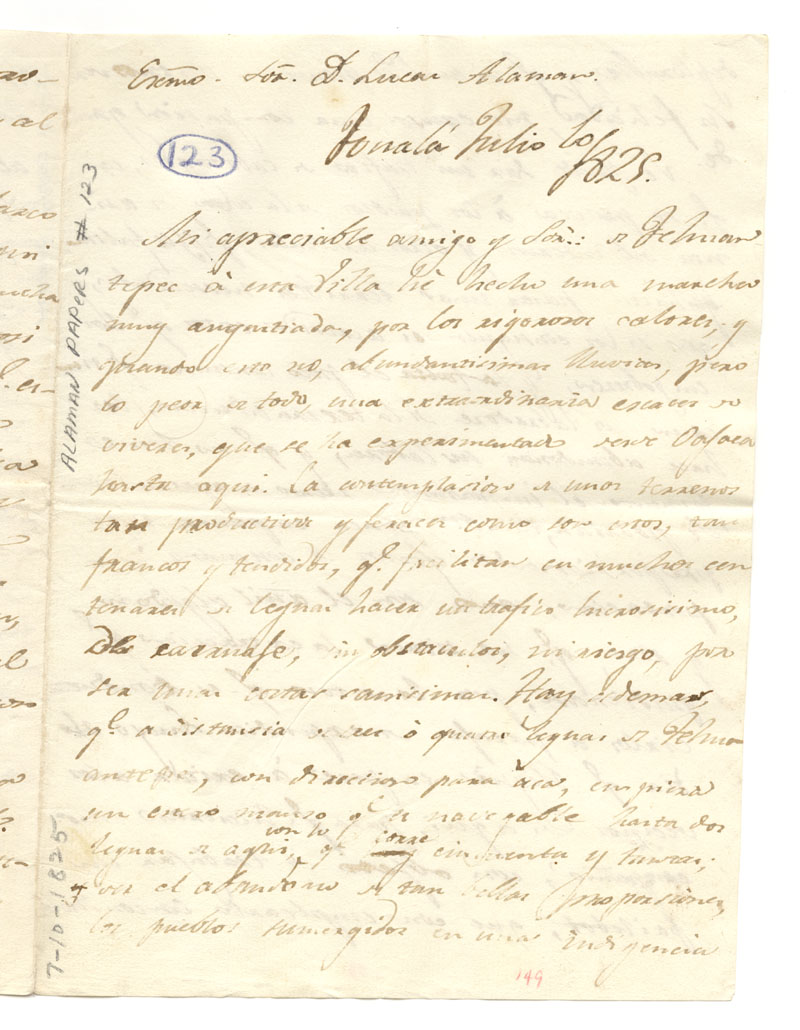 Exmo. Sor. D. Lucas Alaman.
123
Tonalá Julio 10
1825.
ALAMAN PAPERS # 123
Mi apreciable amigo y Sor.: de Tehuan
tepec à esta Villa hé hecho una marcha
muy angustiada, por los rigorosos calores, y
quando esto no, abundantisimas lluvias, pero
lo peor de todo, una extraordinaria escaces de
viveres, que se ha experimentado desde Oaxaca
hasta aqui. La contemplasion de unos terrenos
tan productivos y feraces como son estos, tan
francos y tendidos, qe. facilitan en muchos cen
tenares de leguas hacer un trafico lucrosisimo,
de carruaje, sin obstaculos, ni riesgo, por
ser unas costas sanisimas. Hay ademas,
qe. a distancia de tres ò quatro leguas de Tehu-
antepec, con direccion para àca, empieza
un estero manso qe. es navegable hasta dos
leguas de aqui, con lo qe. corre cincuenta y tantas;
ver el abandono de tan bellas proporsiones,
los pueblos sumergidos en una indigencia
149
7-10-1825